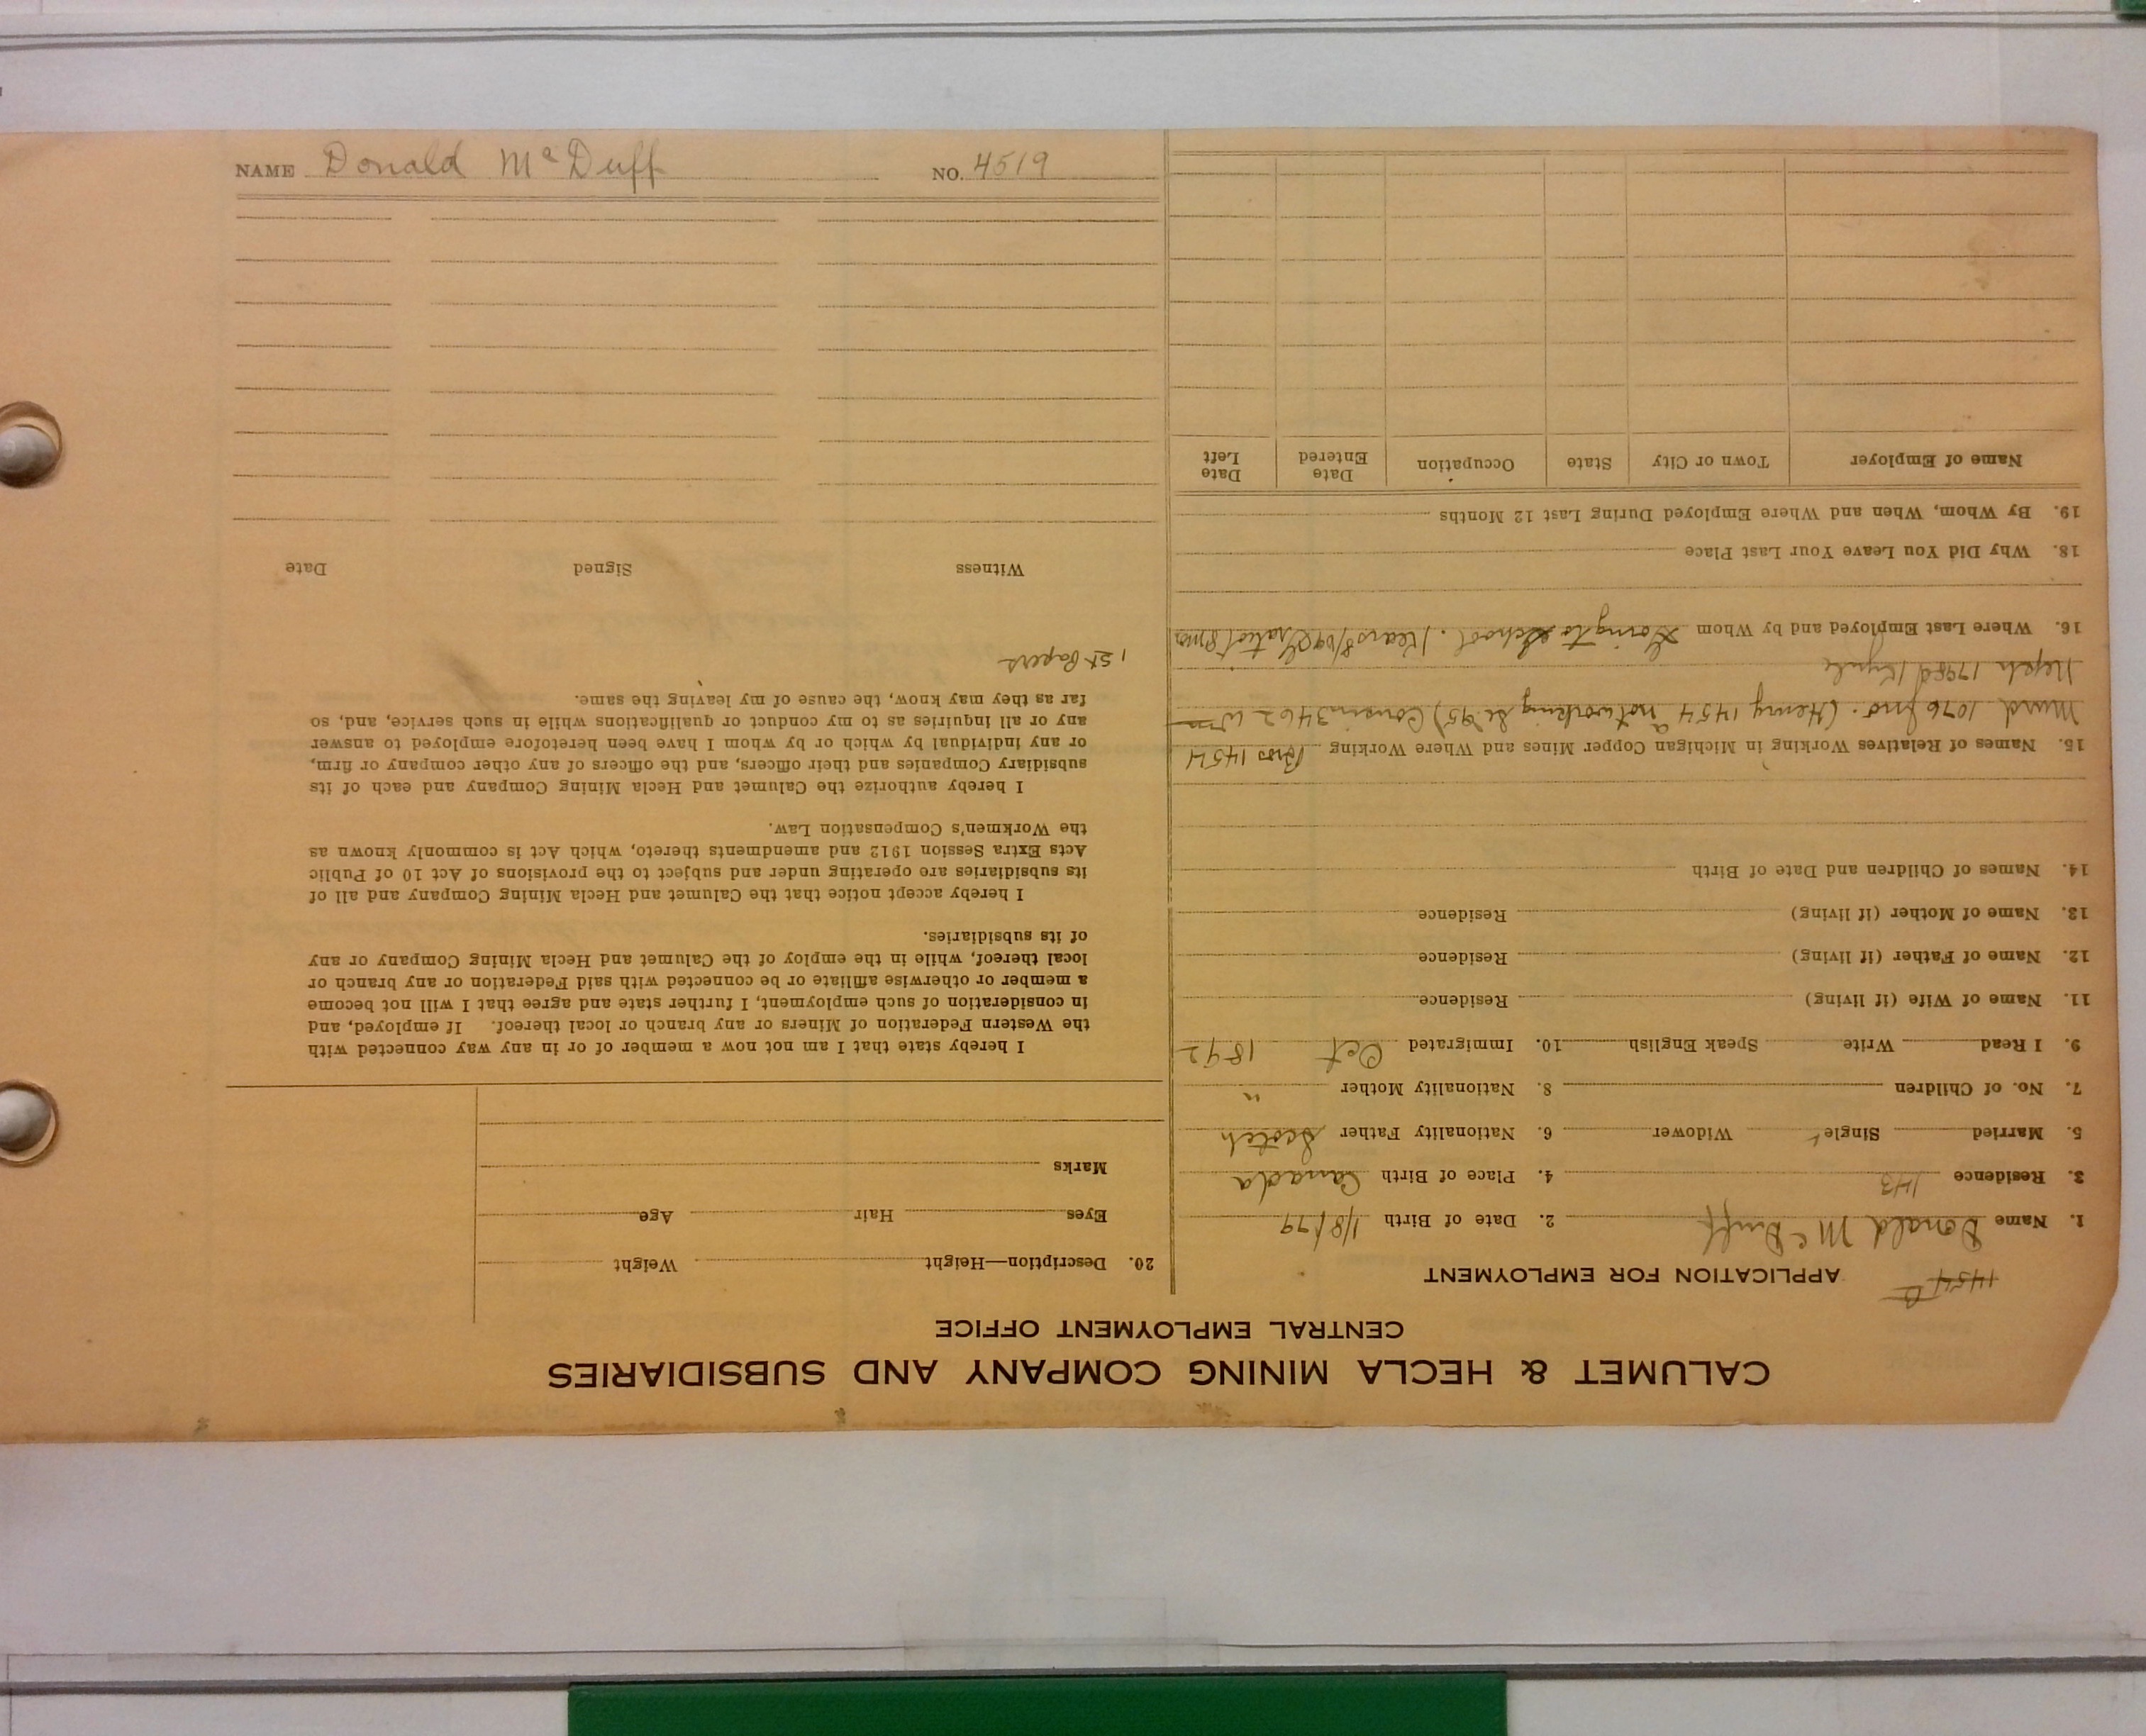 NAME Donald McDuff NO. 4519
CALUMET & HECLA MINING COMPANY AND SUBSIDIARIES
CENTRAL EMPLOYMENT OFFICE
1454
APPLICATION FOR EMPLOYMENT
1. Name Donald McDuff 2. Date of Birth 1/8/79
3. Residence 143 4. Place of Birth Canada
5. Married Single ✓ Widower 6. Nationality Father Scotch
7. No. of Children 8. Nationality Mother "
9. I Read Write Speak English 10. Immigrated Oct 1892
11. Name of Wife (if living) Residence
12. Name of Father (if living) Residence
13. Name of Mother (if living) Residence
14. Names of Children and Date of Birth
15. Names of Relatives Working in Michigan Copper Mines and Where Working Bro 1454
1076 Jno. (Henry 1454 not working Cousin 3462 Wm
Neph
16. Where Last Employed and by Whom Going to School.
18. Why Did You Leave Your Last Place
19. By Whom, When and Where Employed During Last 12 Months
Name of Employer Town or City State Occupation Date Entered Date Left
20. Description—Height Weight
Eyes Hair Age
Marks
I hereby state that I am not now a member of or in any way connected with
the Western Federation of Miners or any branch or local thereof. If employed, and
in consideration of such employment, I further state and agree that I will not become
a member or otherwise affiliate or be connected with said Federation or any branch or
local thereof, while in the employ of the Calumet and Hecla Mining Company or any
of its subsidiaries.
I hereby accept notice that the Calumet and Hecla Mining Company and all of
its subsidiaries are operating under and subject to the provisions of Act 10 of Public
Acts Extra Session 1912 and amendments thereto, which Act is commonly known as
the Workmen's Compensation Law.
I hereby authorize the Calumet and Hecla Mining Company and each of its
subsidiary Companies and their officers, and the officers of any other company or firm,
or any individual by which or by whom I have been heretofore employed to answer
any or all inquiries as to my conduct or qualifications while in such service, and, so
far as they may know, the cause of my leaving the same.
1st Papers
Witness Signed Date